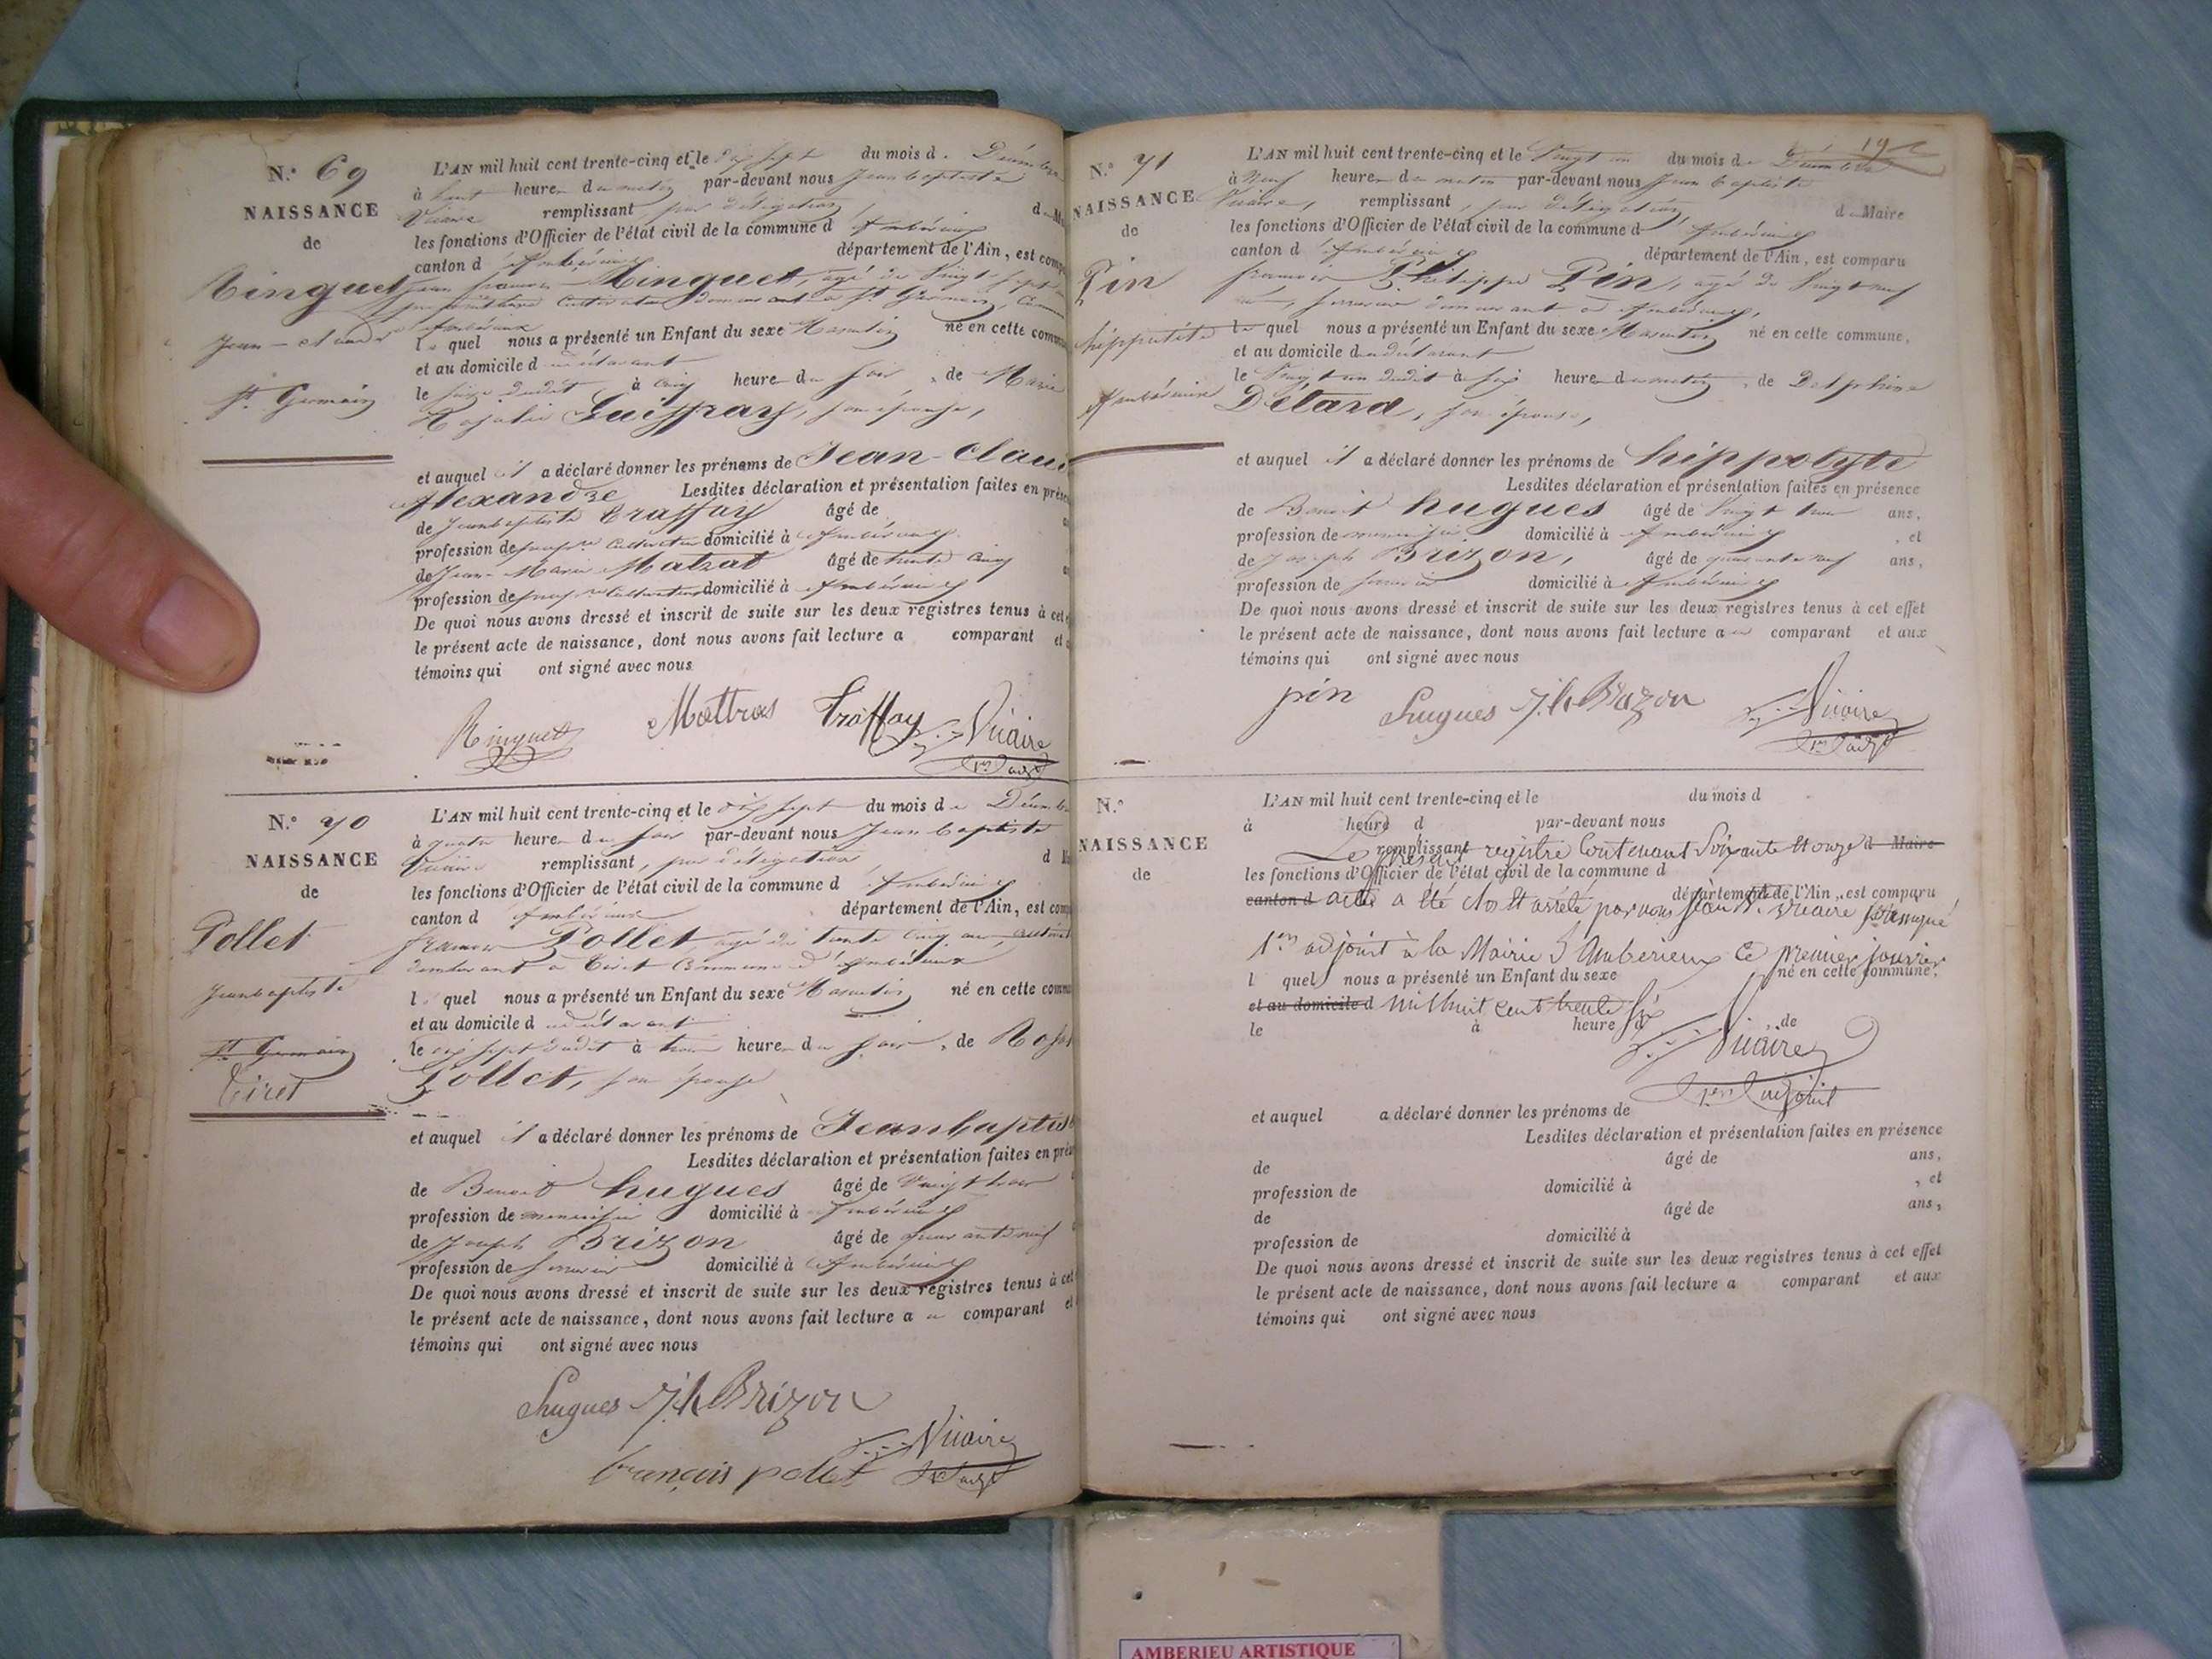 N.º 69
NAISSANCE
de
Ringuet
Jean-Claude
St Germain
L'AN mil huit cent trente-cinq et le dix sept du mois de Décembre
à huit heures du matin par-devant nous Jean baptiste
Vicaire remplissant par délégation, d
les fonctions d'Officier de l'état civil de la commune d'Ambérieux
canton d'Ambérieux département de l'Ain, est comp
Jean françois Ringuet, agé de Vingt sept
propriétaire Cultivateur demeurant a St Germain, Com
d'Ambérieux
lequel nous a présenté un Enfant du sexe Masculin né en cette comm
et au domicile du déclarant
le seize dudit à cinq heures du soir, de Marie
Rosalie Guispray, son épouse,
et auquel il a déclaré donner les prénoms de Jean-Clau
Alexandre Lesdites déclaration et présentation faites en prés
de Jean baptiste Traffay âgé de
profession de propre Cultivateur domicilié à Ambérieux
de Jean-Marie Matrat âgé de trente cinq
profession de propre Cultivateur domicilié à Ambérieux
De quoi nous avons dressé et inscrit de suite sur les deux registres tenus à cet
le présent acte de naissance, dont nous avons fait lecture a comparant et
témoins qui ont signé avec nous
Ringuet Mattras Traffay Vicaire
1er adjt
N.º 70
NAISSANCE
de
Pollet
Jeanbaptiste
St Germain
Tiret
L'AN mil huit cent trente-cinq et le dix sept du mois de Décembre
à quatre heures du soir par-devant nous Jean baptiste
Vicaire remplissant, par délégation d
les fonctions d'Officier de l'état civil de la commune d'Ambérieux
canton d'Ambérieux département de l'Ain, est com
francois Pollet, agé de trente cinq ans, cultivat
demeurant a Tiret Commune d'Ambérieux
lequel nous a présenté un Enfant du sexe Masculin né en cette comm
et au domicile du déclarant
le dix sept dudit à trois heures du soir, de Rosa
Pollet, son épouse
et auquel il a déclaré donner les prénoms de Jeanbaptist
Lesdites déclaration et présentation faites en pré
de Benoit hugues âgé de Vingt trois
profession de menuisier domicilié à Ambérieux
de Joseph Brizon âgé de quarante neuf
profession de serrurier domicilié à Ambérieux
De quoi nous avons dressé et inscrit de suite sur les deux registres tenus à cet
le présent acte de naissance, dont nous avons fait lecture au comparant et
témoins qui ont signé avec nous
hugues Jh Brizon
Vicaire
françois pollet 1er adjt
N.º 71
NAISSANCE
de
Pin
hippolite
Ambérieux
L'AN mil huit cent trente-cinq et le Vingt un du mois de Décembre
à Neuf heures du matin par-devant nous Jean baptiste
Vicaire, remplissant, par délégation, de Maire
les fonctions d'Officier de l'état civil de la commune d'Ambérieux
canton d'Ambérieux département de l'Ain, est comparu
françois Philippe Pin, agé de Vingt neuf
ans, serrurier demeurant a Ambérieux,
lequel nous a présenté un Enfant du sexe Masculin né en cette commune,
et au domicile du déclarant
le Vingt un dudit à six heures du matin, de Delphine
Détard, son épouse,
et auquel il a déclaré donner les prénoms de hippolyte
Lesdites déclaration et présentation faites en présence
de Benoit hugues âgé de Vingt trois ans,
profession de menuisier domicilié à Ambérieux, et
de Joseph Brizon, âgé de quarante neuf ans,
profession de serrurier domicilié à Ambérieux
De quoi nous avons dressé et inscrit de suite sur les deux registres tenus à cet effet
le présent acte de naissance, dont nous avons fait lecture au comparant et aux
témoins qui ont signé avec nous
pin hugues Jh Brizon Vicaire
1er adjt
N.º
NAISSANCE
de
L'AN mil huit cent trente-cinq et le du mois d
à heure d par-devant nous
remplissant d Maire
Le présent registre Contenant Soixante et onze
les fonctions d'Officier de l'état civil de la commune d
canton d département de l'Ain, est comparu
acte a été clos et arrêté par nous Jean Bte Vicaire soussigné
1er adjoint à la Mairie d'Ambérieux ce premier janvier
l quel nous a présenté un Enfant du sexe né en cette commune,
et au domicile d mil huit cent trente six
le à heure d , de
Vicaire
1er adjoint
et auquel a déclaré donner les prénoms de
Lesdites déclaration et présentation faites en présence
de âgé de ans,
profession de domicilié à , et
de âgé de ans,
profession de domicilié à
De quoi nous avons dressé et inscrit de suite sur les deux registres tenus à cet effet
le présent acte de naissance, dont nous avons fait lecture a comparant et aux
témoins qui ont signé avec nous
AMBERIEU ARTISTIQUE